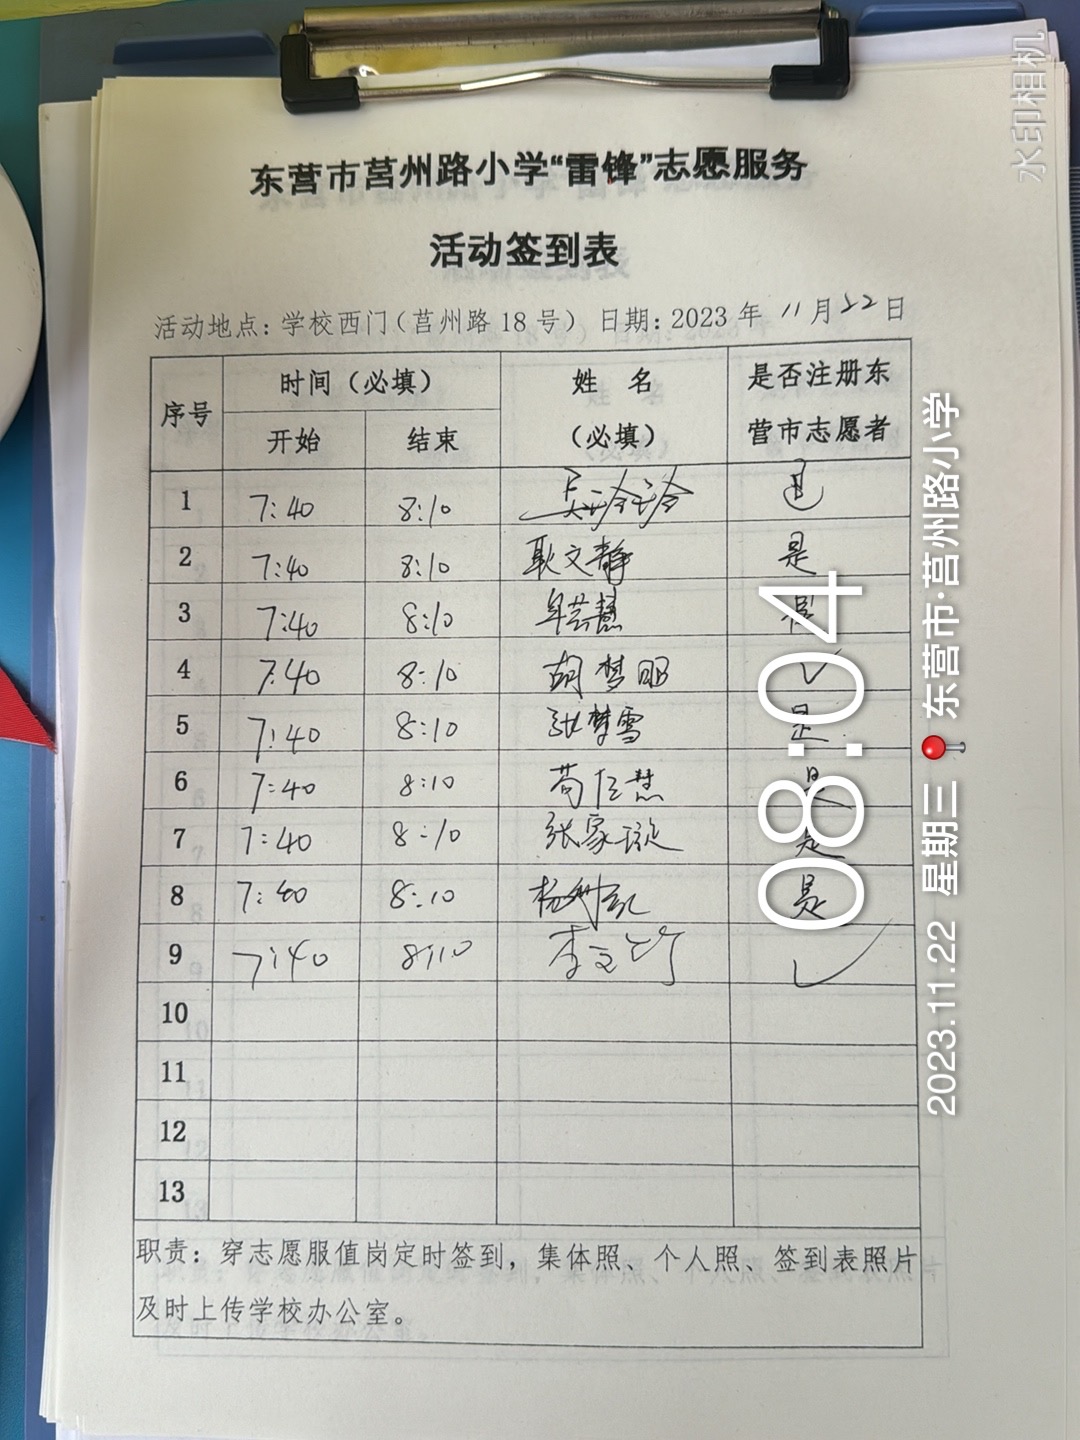 水印相机
东营市莒州路小学“雷锋”志愿服务
活动签到表
活动地点：学校西门（莒州路 18 号） 日期：2023 年 11 月 22 日
序号 时间（必填） 姓 名 是否注册东
开始 结束 （必填） 营市志愿者
1 7:40 8:10 是
2 7:40 8:10 耿文静 是
3 7:40 8:10 牟芸慧 是
4 7:40 8:10 胡梦 ✓
5 7:40 8:10 张梦雪 是
6 7:40 8:10 苟 慧 是
7 7:40 8:10 张家璇 是
8 7:40 8:10 杨 是
9 7:40 8:10 李文 ✓
10
11
12
13
职责：穿志愿服值岗定时签到，集体照、个人照、签到表照片
及时上传学校办公室。
08:04
2023.11.22 星期三 东营市·莒州路小学